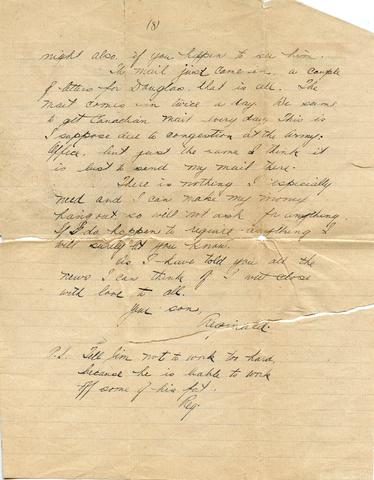 (8)
might also, if you happen to see him.
The mail just came in, a couple
of letters for Douglas, that is all. The
mail comes in twice a day. We seem
to get Canadian mail every day. This is
I suppose due to congestion at the Army.
Office, but just the same I think it
is best to send my mail there.
There is nothing I especially
need and I can make my money
hang out so will not ask for anything.
If I do happen to require anything I
will surely let you know.
As I have told you all the
news I can think of I will close
with love to all.
Your son,
Reginald.
P.S. Tell Jim not to work too hard,
because he is liable to work
off some of his fat.
Reg.